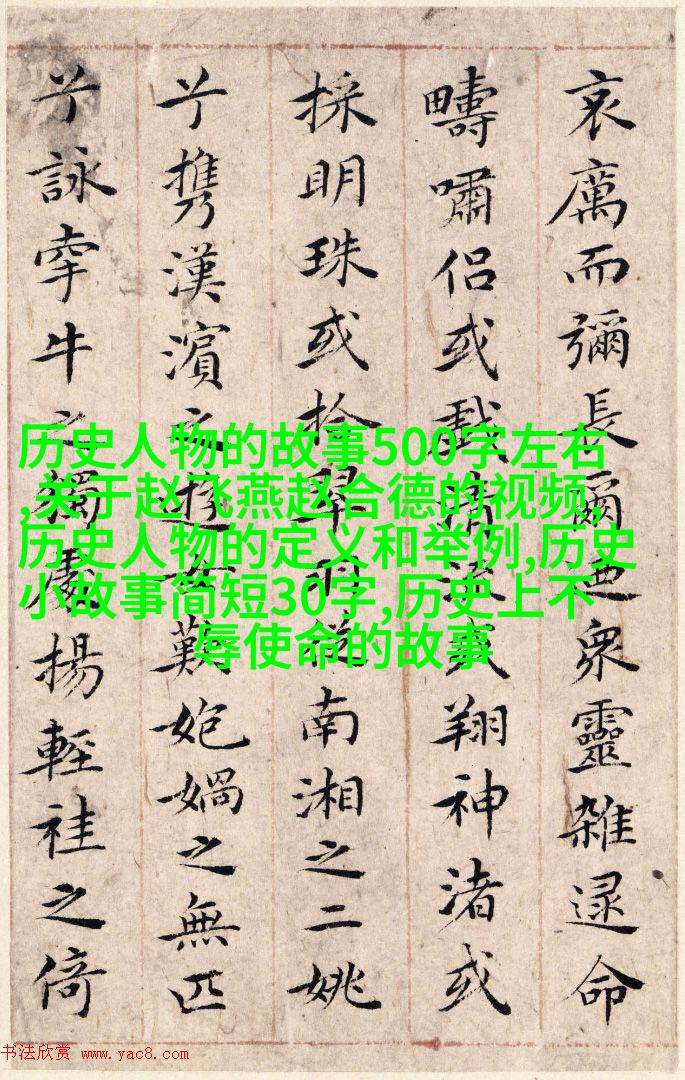 哀厲而彌長爾迺衆靈雜遝命
疇嘯侶或戲清流或翔神渚或
採明珠或拾翠羽從南湘之二姚
兮携漢濱之遊女歎媧之無匹
兮詠牽牛之獨處揚輕袿之倚
历史人物的故事500字左右
,关于赵飞燕赵合德的视频,
历史人物的定义和举例,历史
小故事简短30字,历史上不
辱使命的故事
书法欣赏 www.yac8.com